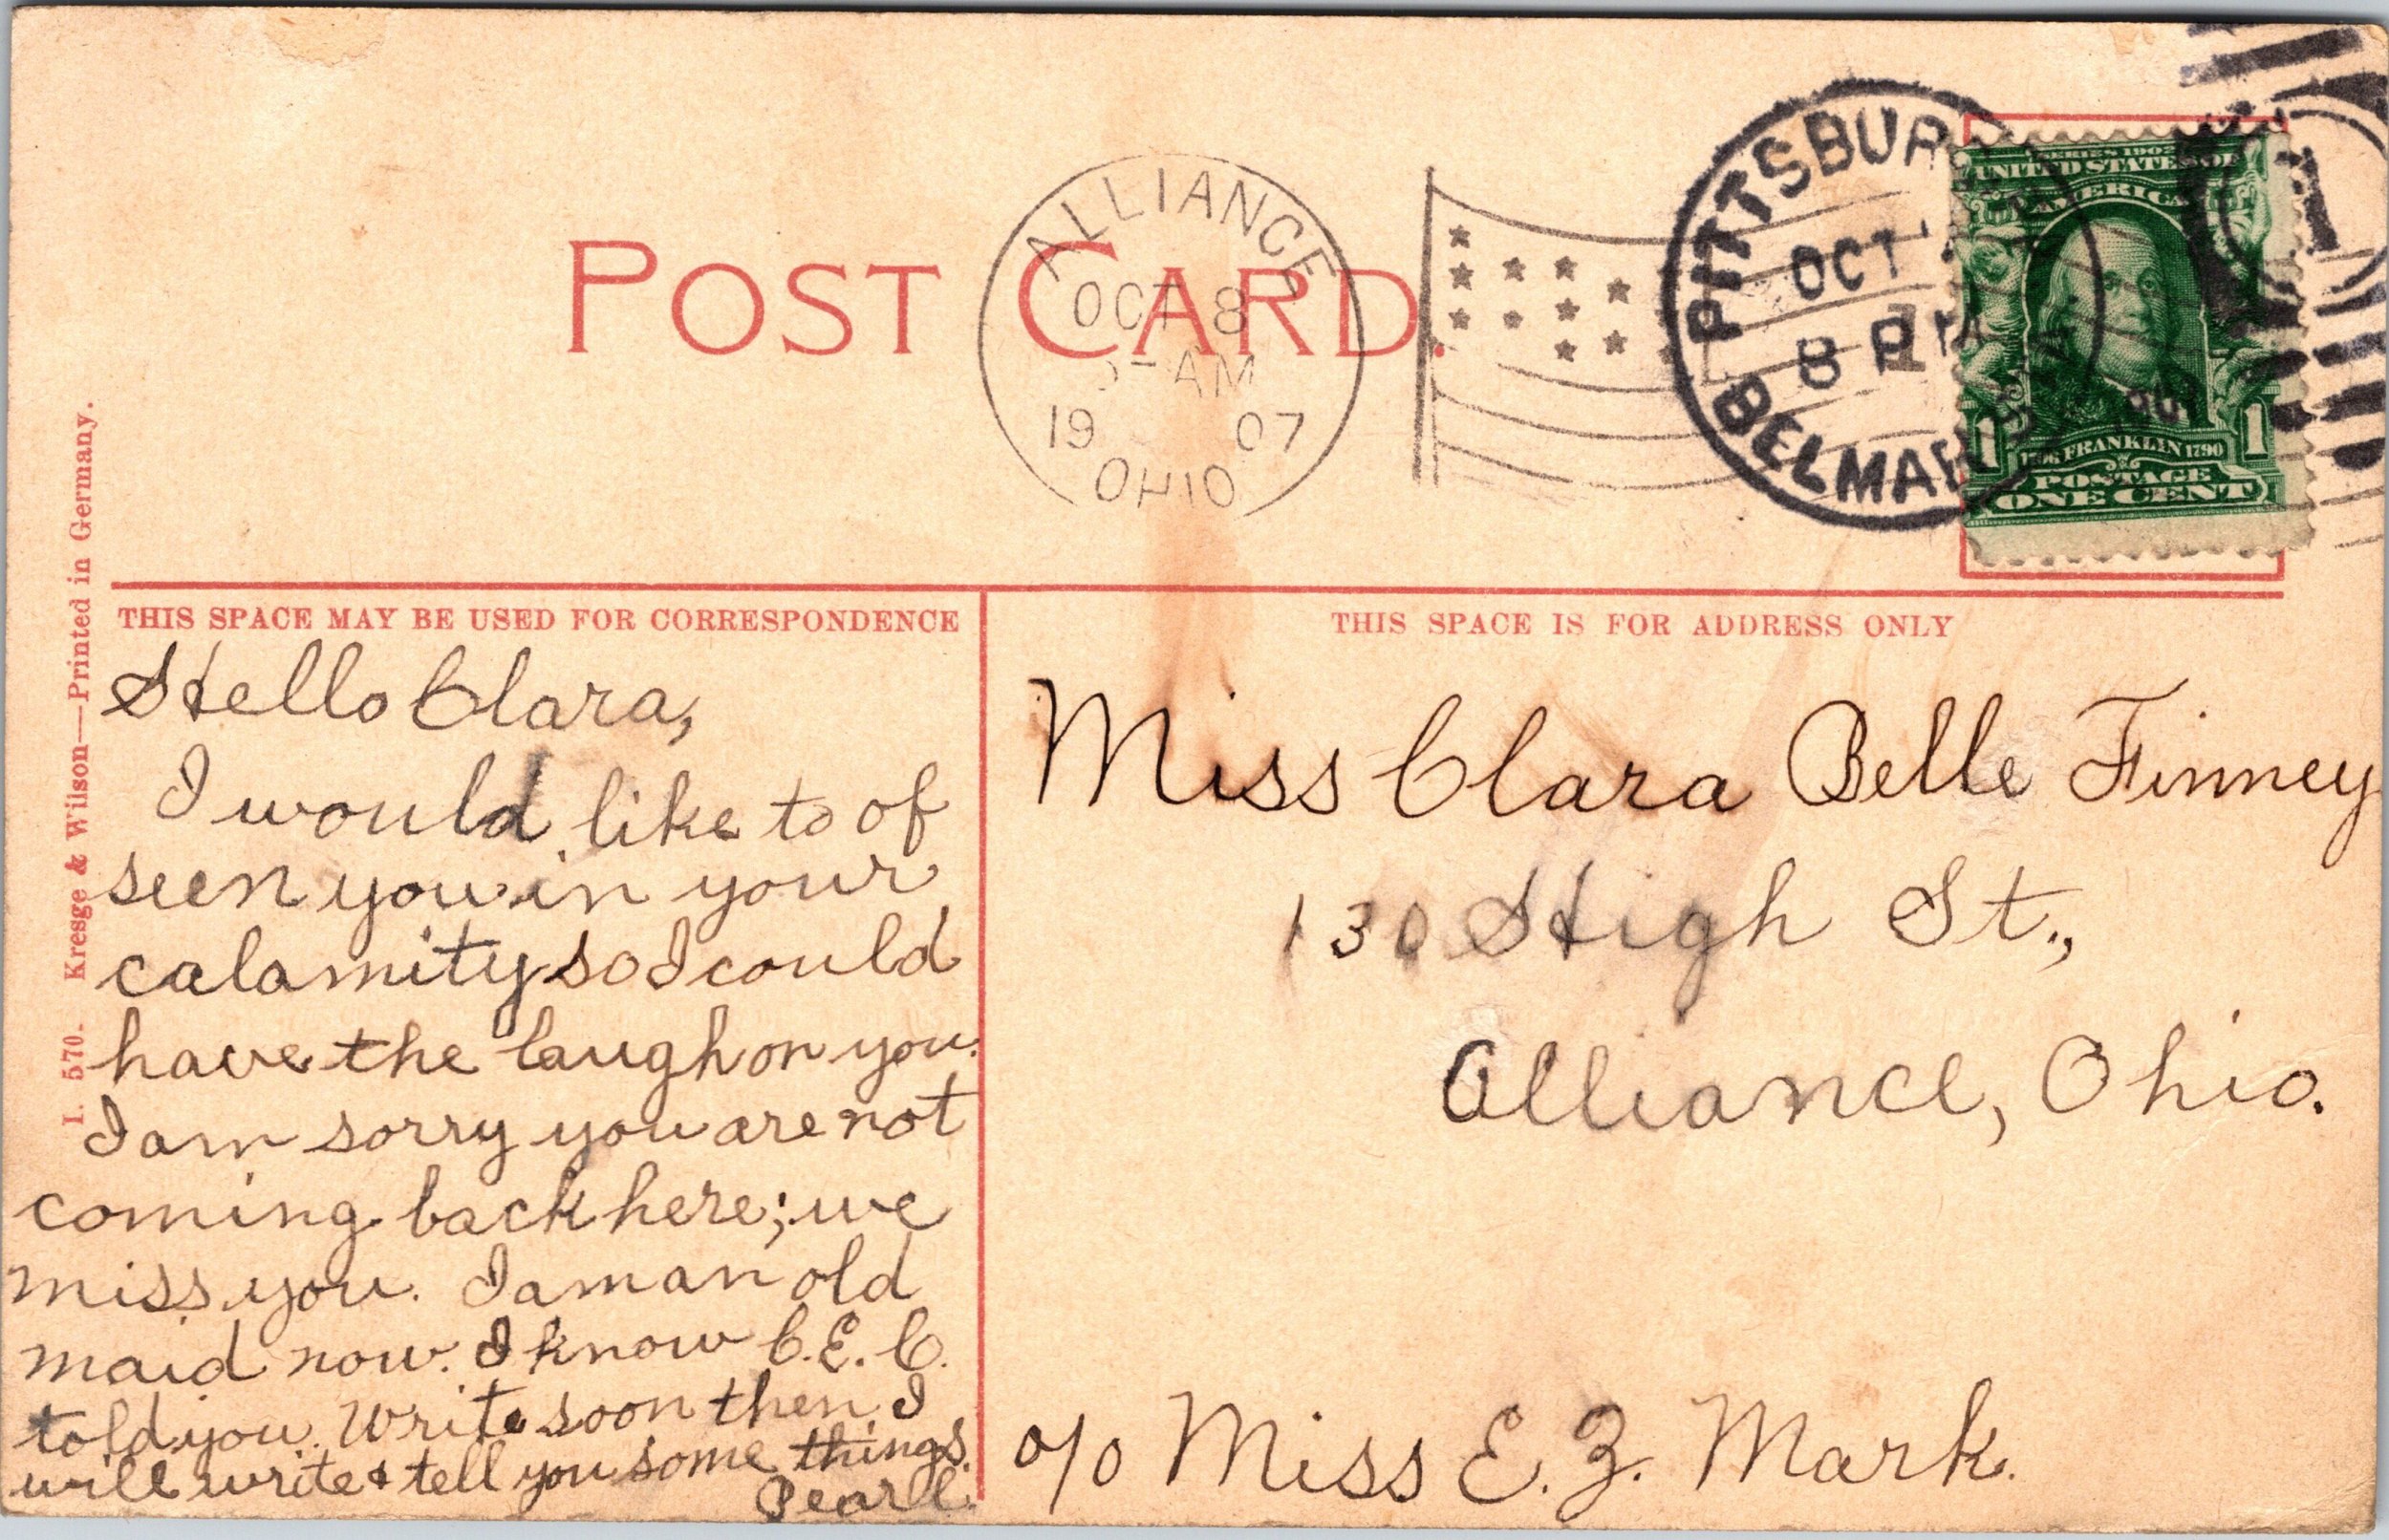 POST CARD.
ALLIANCE
OCT 8
-AM
19 07
OHIO
PITTSBUR
OCT
8 PM
BELMAR
SERIES 1902
UNITED STATES OF
AMERICA
1
1706 FRANKLIN 1790
1 1
POSTAGE
ONE CENT
THIS SPACE MAY BE USED FOR CORRESPONDENCE
THIS SPACE IS FOR ADDRESS ONLY
I. 570. Kresge & Wilson—Printed in Germany.
Hello Clara,
I would like to of
seen you in your
calamity so I could
have the laugh on you.
I am sorry you are not
coming back here; we
miss you. I am an old
maid now. I know C.E.C.
told you. Write soon then I
will write & tell you some things.
Pearl.
Miss Clara Belle Finney
130 High St.,
Alliance, Ohio.
c/o Miss E. Z. Mark.